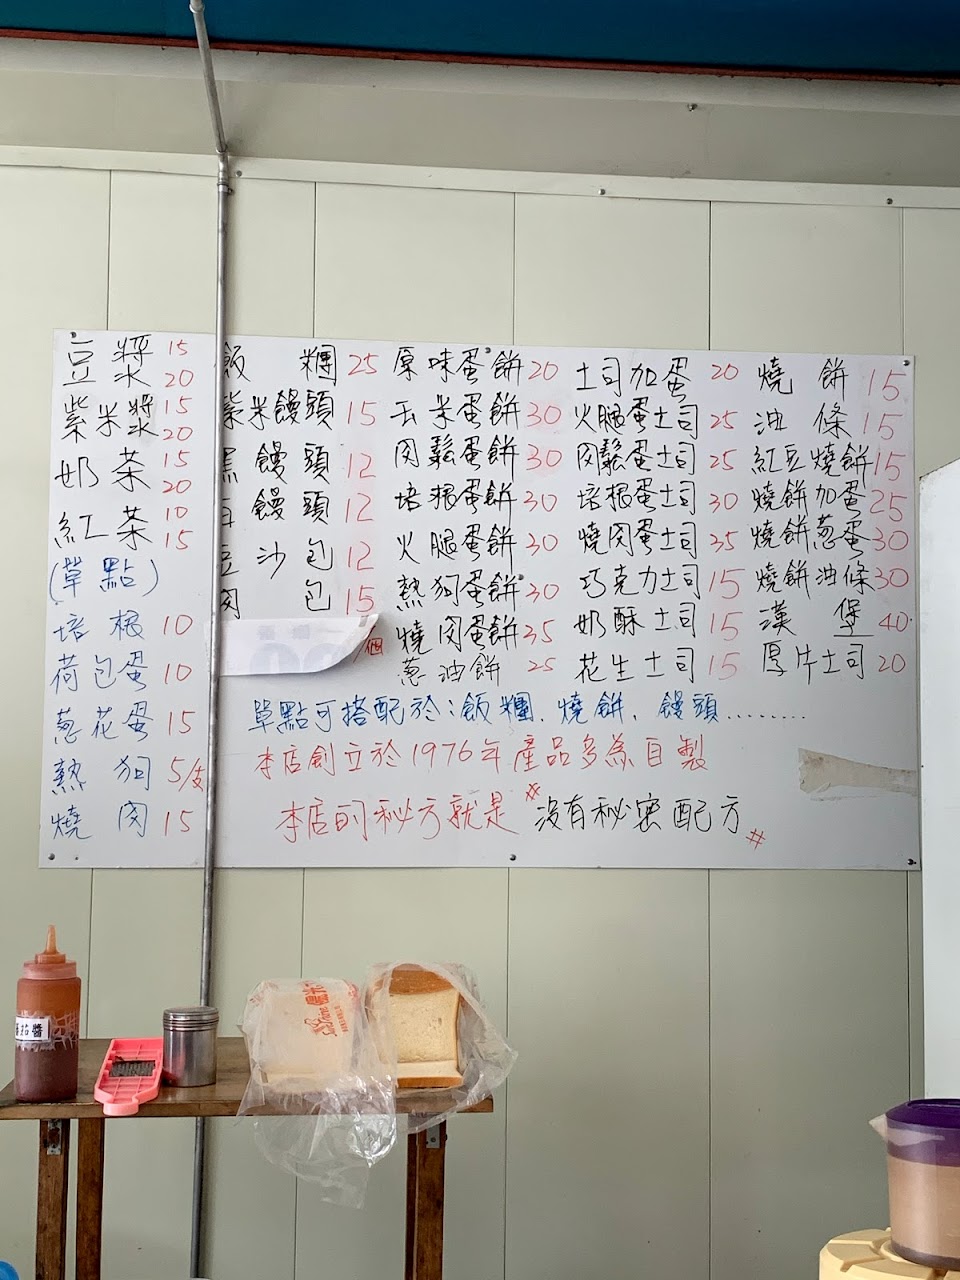 豆漿 15 20
紫米漿 15 20
奶茶 15 20
紅茶 10 15
(單點)
培根 10
荷包蛋 10
蔥花蛋 15
熱狗 5/支
燒肉 15
飯糰 25
紫米饅頭 15
黑饅頭 12
白饅頭 12
豆沙包 12
肉包 15
/個
原味蛋餅 20
玉米蛋餅 30
肉鬆蛋餅 30
培根蛋餅 30
火腿蛋餅 30
熱狗蛋餅 30
燒肉蛋餅 35
蔥油餅 25
土司加蛋 20
火腿蛋土司 25
肉鬆蛋土司 25
培根蛋土司 30
燒肉蛋土司 35
巧克力土司 15
奶酥土司 15
花生土司 15
燒餅 15
油條 15
紅豆燒餅 15
燒餅加蛋 25
燒餅蔥蛋 30
燒餅油條 30
漢堡 40
厚片土司 20
單點可搭配於:飯糰、燒餅、饅頭........
本店創立於1976年產品多為自製
本店的秘方就是 沒有秘密配方